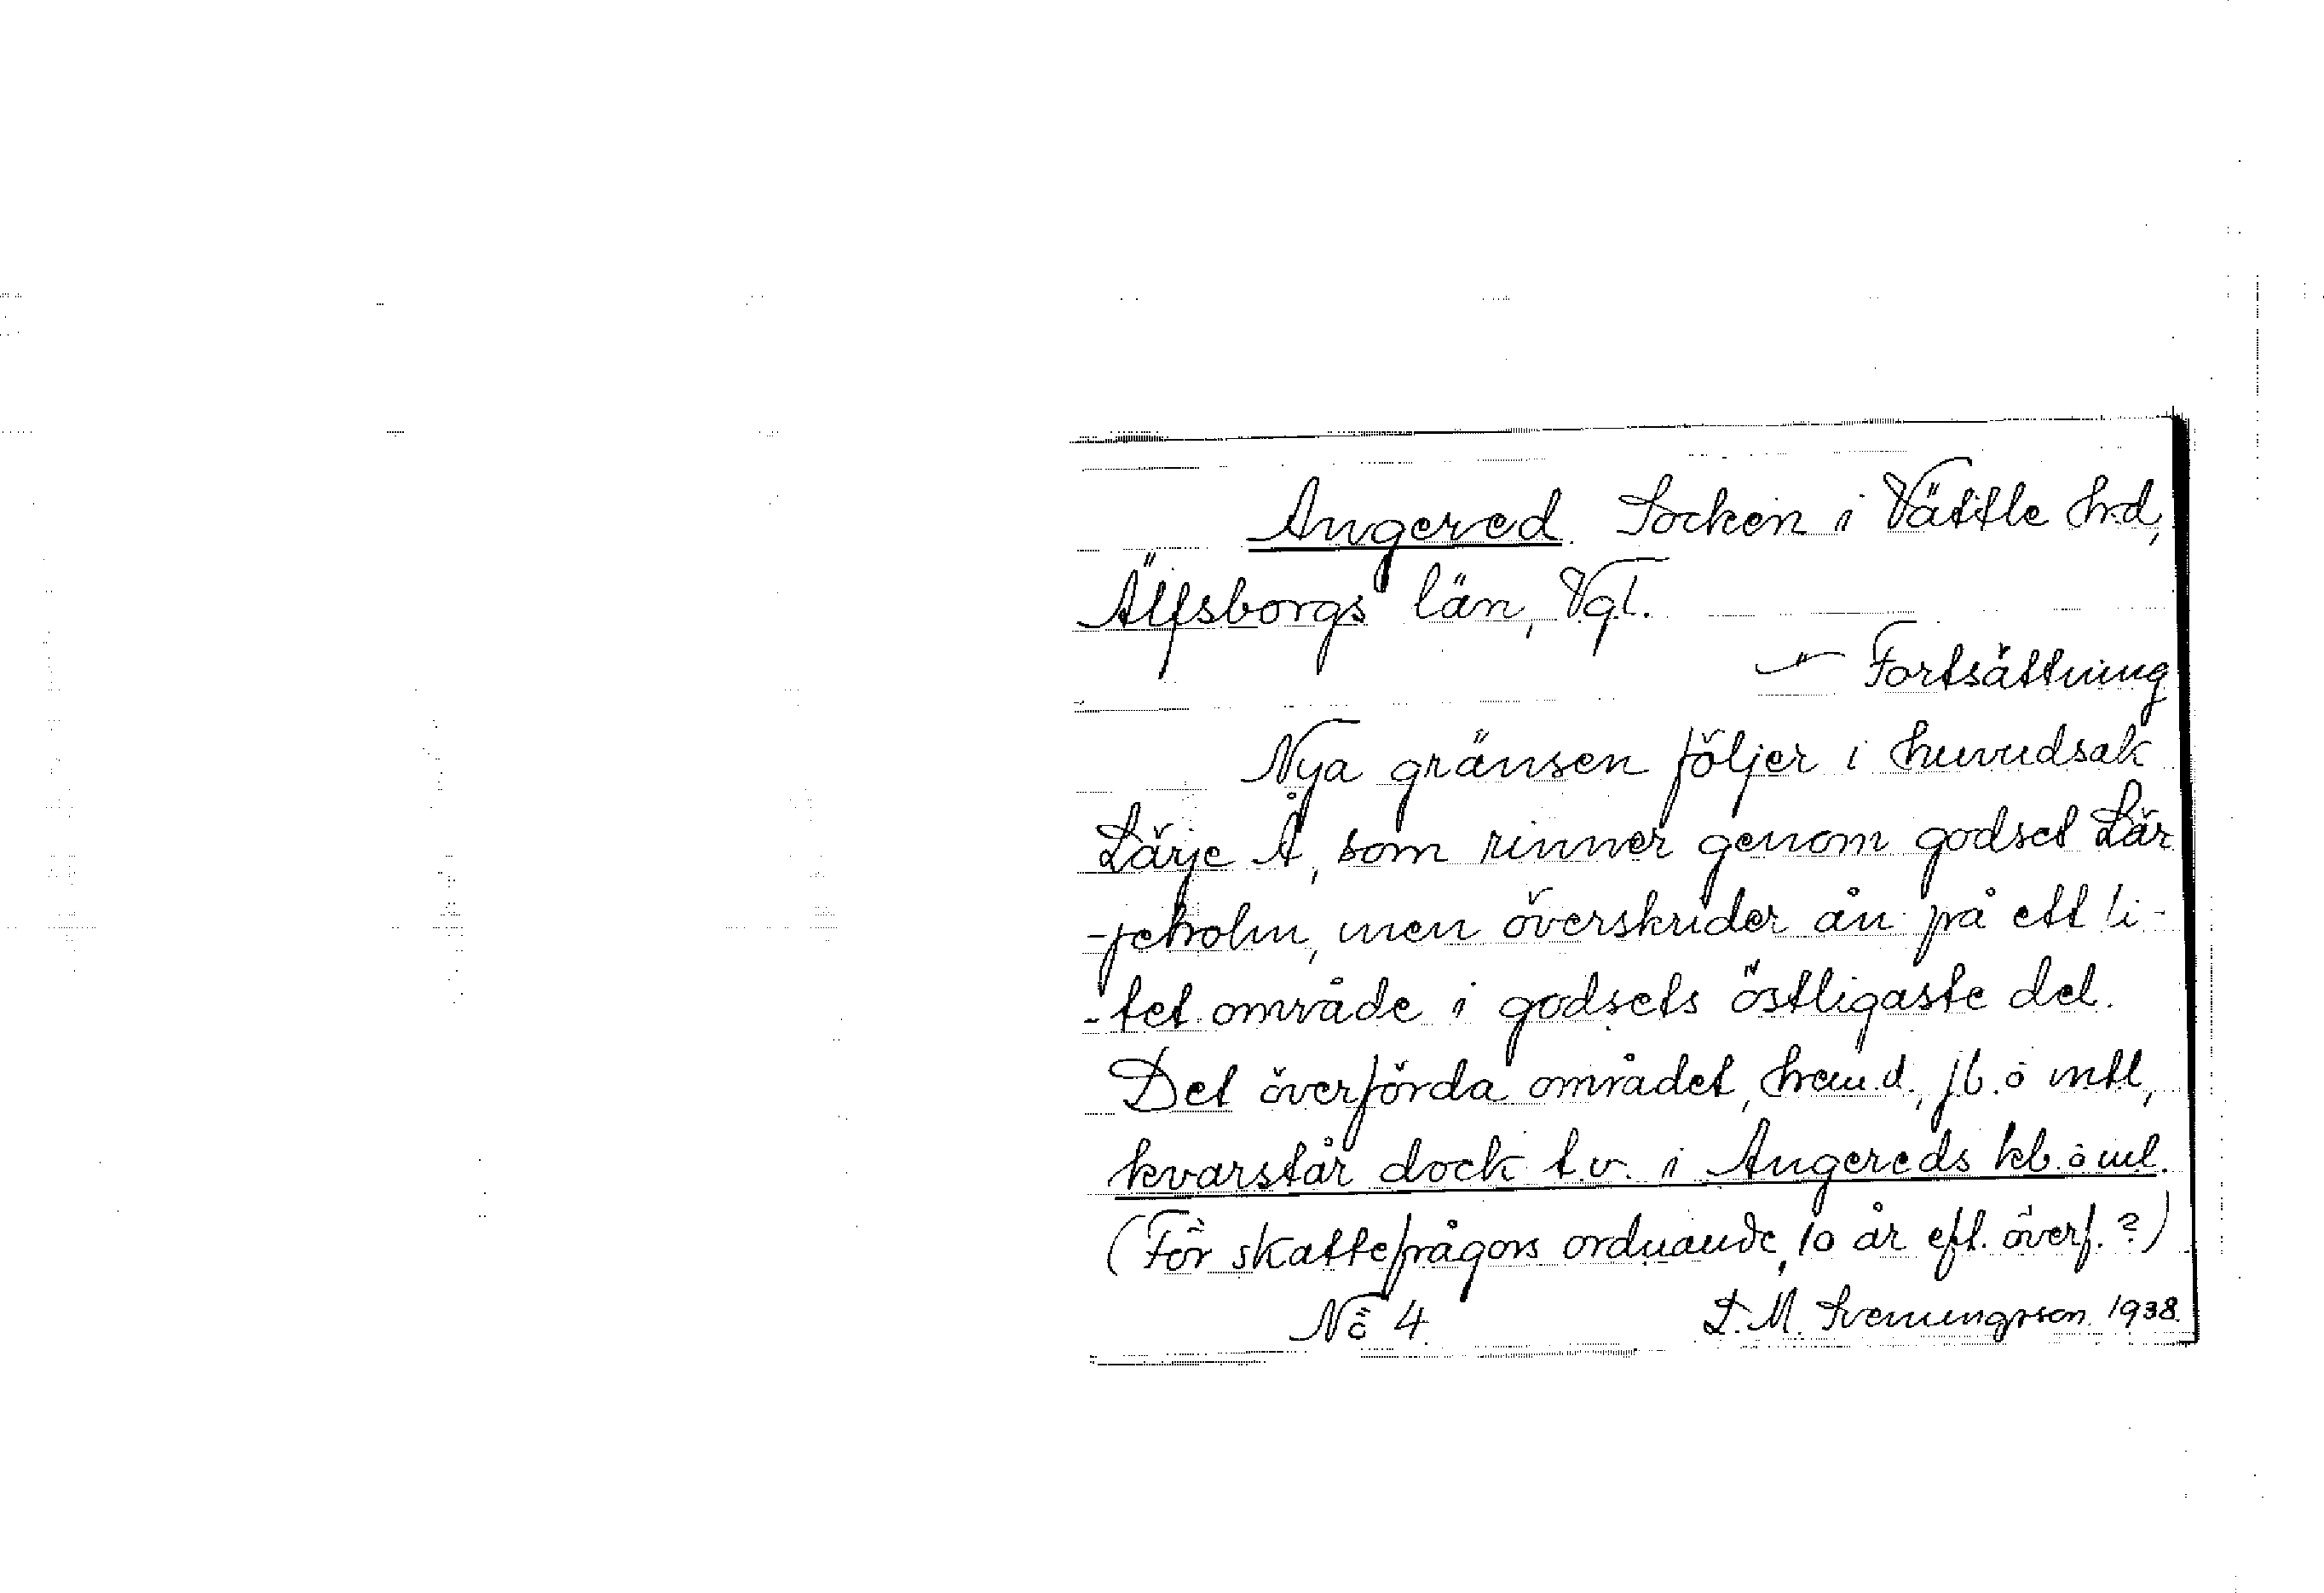 Angered. Socken i Vättle hrd,
Älfsborgs län, Vgl.
–"– Fortsättning
Nya gränsen följer i huvudsak
Lärje Å, som rinner genom godset Lär
-jeholm, men överskrider ån på ett li-
-tet område i godsets östligaste del.
Det överförda området, hem.d., jb. o mtl,
kvarstår dock t.v. i Angereds kb. o ml.
(För skattefrågors ordnande, 10 år eft. överf.?)
No 4. L. M. Svenungsson. 1938.